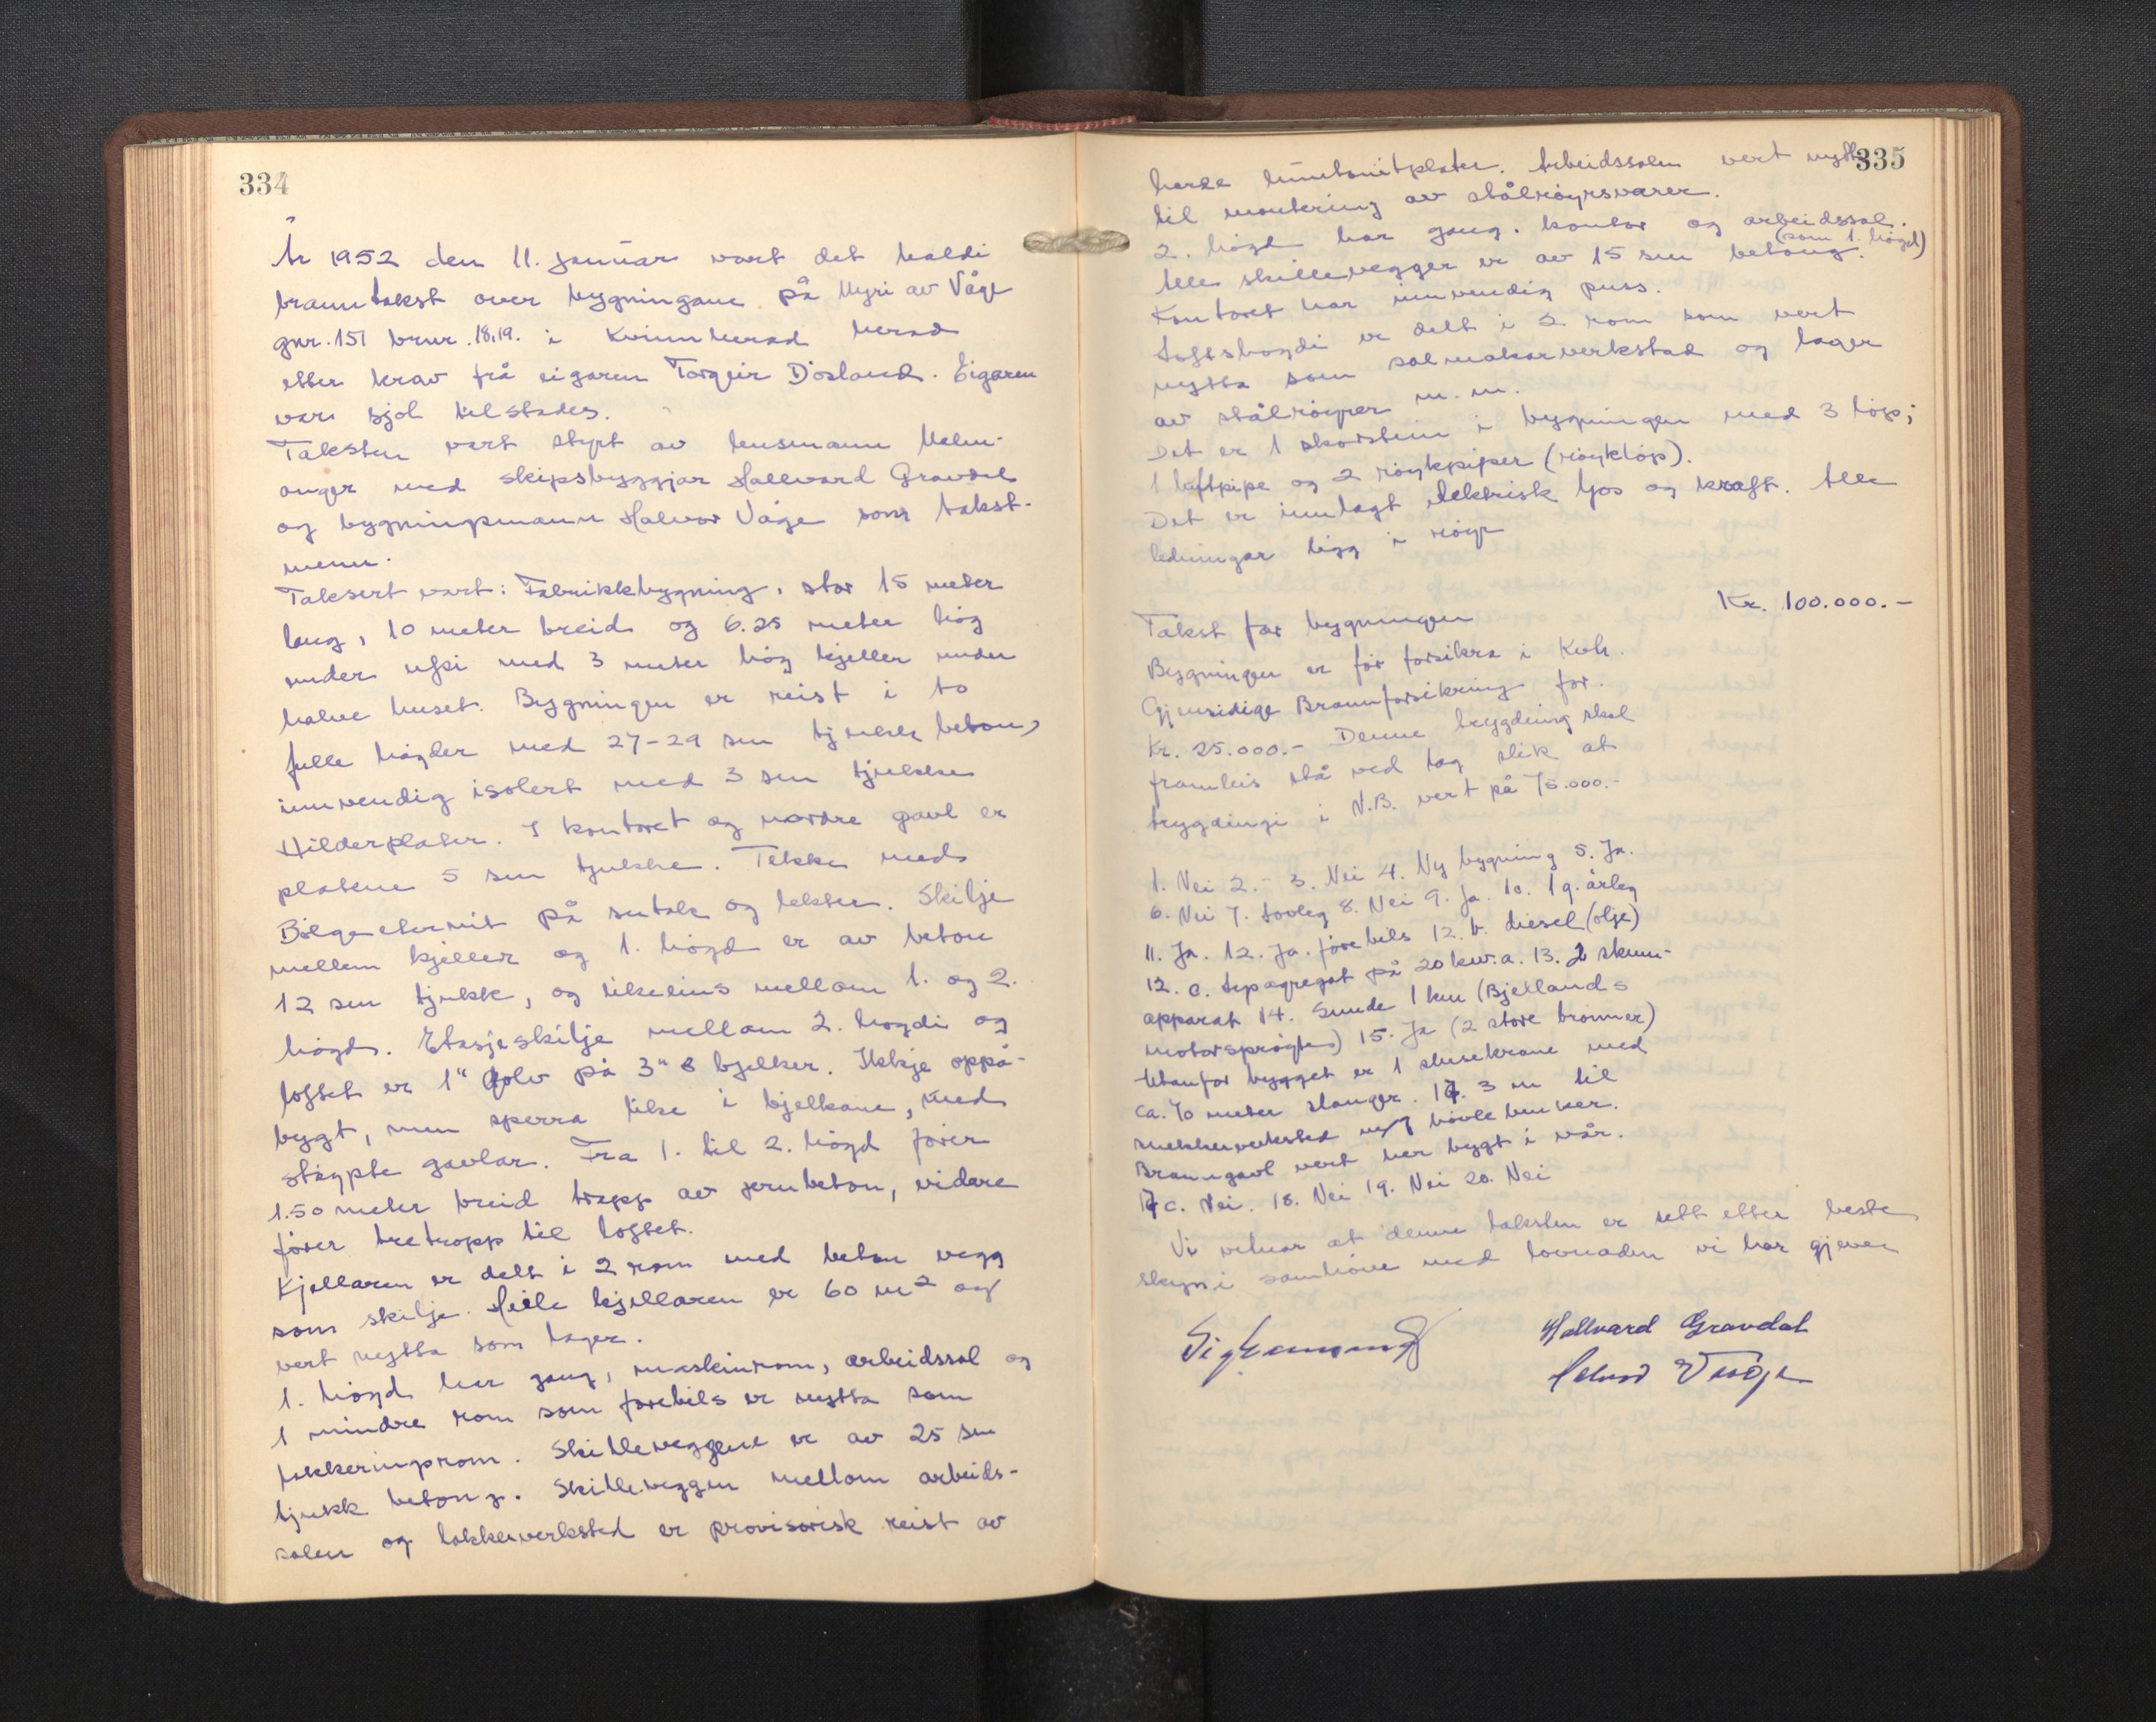 334
År 1952 den 11. januar vart det haldi
branntakst over bygningane på Myri av Våge
gnr. 151 brnr. 18,19. i Kvinnherad herad
etter krav frå eigaren Torgeir Døsland. Eigaren
var sjøl tilstades.
Taksten vart styrt av lensmann Malm-
anger med skipsbyggjar Hallvard Gravdal
og bygningsmann Halvor Våge som takst-
menn.
Taksert vart: Fabrikkbygning, stor 15 meter
lang, 10 meter breid og 6.25 meter høg
under ufsi med 3 meter høg kjeller under
halve huset. Bygningen er reist i to
fulle høgder med 27-29 sm tjukk beton,
innvendig isolert med 3 sm tjukke
Hilderplater. I kontoret og nordre gavl er
platene 5 sm tjukke. Tekke med
Bølgeeternit på sutak og lekter. Skilje
mellem kjeller og 1. høgd er av beton
12 sm tjukk, og likeleins mellom 1. og 2.
høgd. Etasjeskilje mellom 2. høgdi og
loftet er 1" golv på 3" 8 bjelker. Ikkje oppå-
bygt, men sperra like i bjelkane, med
støypte gavlar. Fra 1. til 2. høgd fører
1.50 meter breid trapp av jernbeton, vidare
fører tretrapp til loftet.
Kjellaren er delt i 2 rom med beton vegg
som skilje. Heile kjellaren er 60 m2 og
vert nytta som lager.
1. høgd har gang, maskinrom, arbeidssal og
1 mindre rom som førebils er nytta som
lakkeringsrom. Skilleveggene er av 25 sm
tjukk betong. Skilleveggen mellom arbeids-
salen og lakkerverksted er provisorisk reist av
335
harde plater. Arbeidssalen vert nytta
til montering av stålrøyrsvarer.
2. høgd har gang, kontor og arbeidssal.
(som 1. høgd)
Alle skillevegger er av 15 sm betong.
Kontoret har innvendig puss.
Loftshøgdi er delt i 2 rom som vert
nytta som salmakarverkstad og lager
av stålrøyrer m.m.
Det er 1 skorstein i bygningen med 3 løp;
1 luftpipe og 2 røykpiper (røykløp).
Det er innlagt elektrisk ljos og kraft. Alle
ledningar ligg i røyr
Takst for bygningen Kr. 100.000.-
Bygningen er før forsikra i Kvh.
Gjensidige Brannforsikring for
Kr. 25.000.- Denne trygding skal
framleis stå ved lag slik at
trygdingi i N.B. vert på 75.000.-
1. Nei 2.- 3. Nei 4. Ny bygning 5. Ja.
6. Nei 7. Lovleg 8. Nei 9. Ja. 10. 1 g. årleg
11. Ja. 12. Ja. førebils 12. b. diesel (olje)
12. c. agregat på 20 kw.a. 13. 2 skum-
apparat 14. Sunde 1 km (Bjellands
motorsprøyte) 15. Ja (2 store brønner)
Utanfor bygget er 1 slusekrane med
ca. 70 meter slanger. 17. 3 m til
snekkerverksted m/ høvle benker.
Branngavl vert her bygt i vår.
17 c. Nei. 18. Nei 19. Nei 20. Nei
Vi vitnar at denne taksten er sett etter beste
skyn i samhøve med lovnaden vi har gjeve
Hallvard Gravdal
Halvor Våge